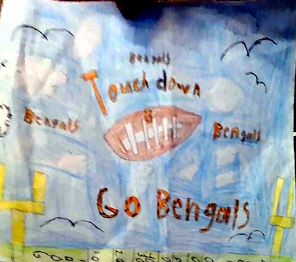 Bengals
Touchdown
Bengals
Bengals
Go Bengals